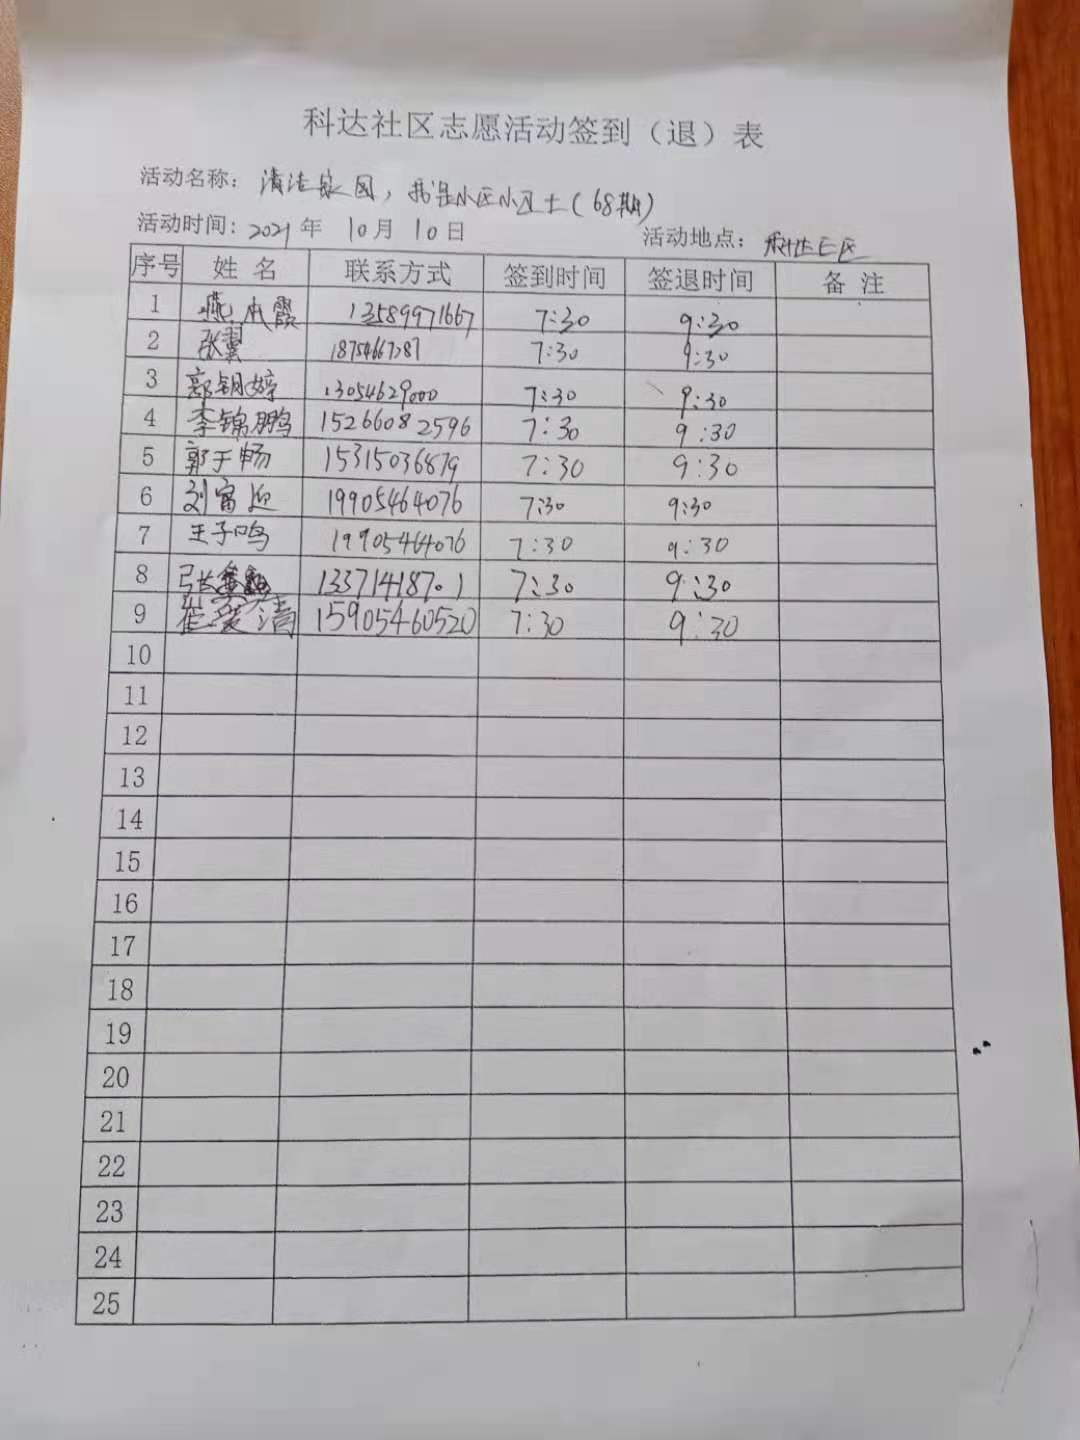 科达社区志愿活动签到（退）表
活动名称：清洁家园，我是小区小卫士（68期）
活动时间：2021年 10月 10日 活动地点：科达E区
序号 姓名 联系方式 签到时间 签退时间 备注
1 燕本霞 13589971667 7:30 9:30
2 张翼 7:30 9:30
3 郭钥婷 13054629000 7:30 9:30
4 李锦鹏 15266082596 7:30 9:30
5 郭于畅 15315036879 7:30 9:30
6 刘富近 19905464076 7:30 9:30
7 王子鸣 19905464076 7:30 9:30
8 张 13371418701 7:30 9:30
9 崔爱清 15905460520 7:30 9:30
10
11
12
13
14
15
16
17
18
19
20
21
22
23
24
25